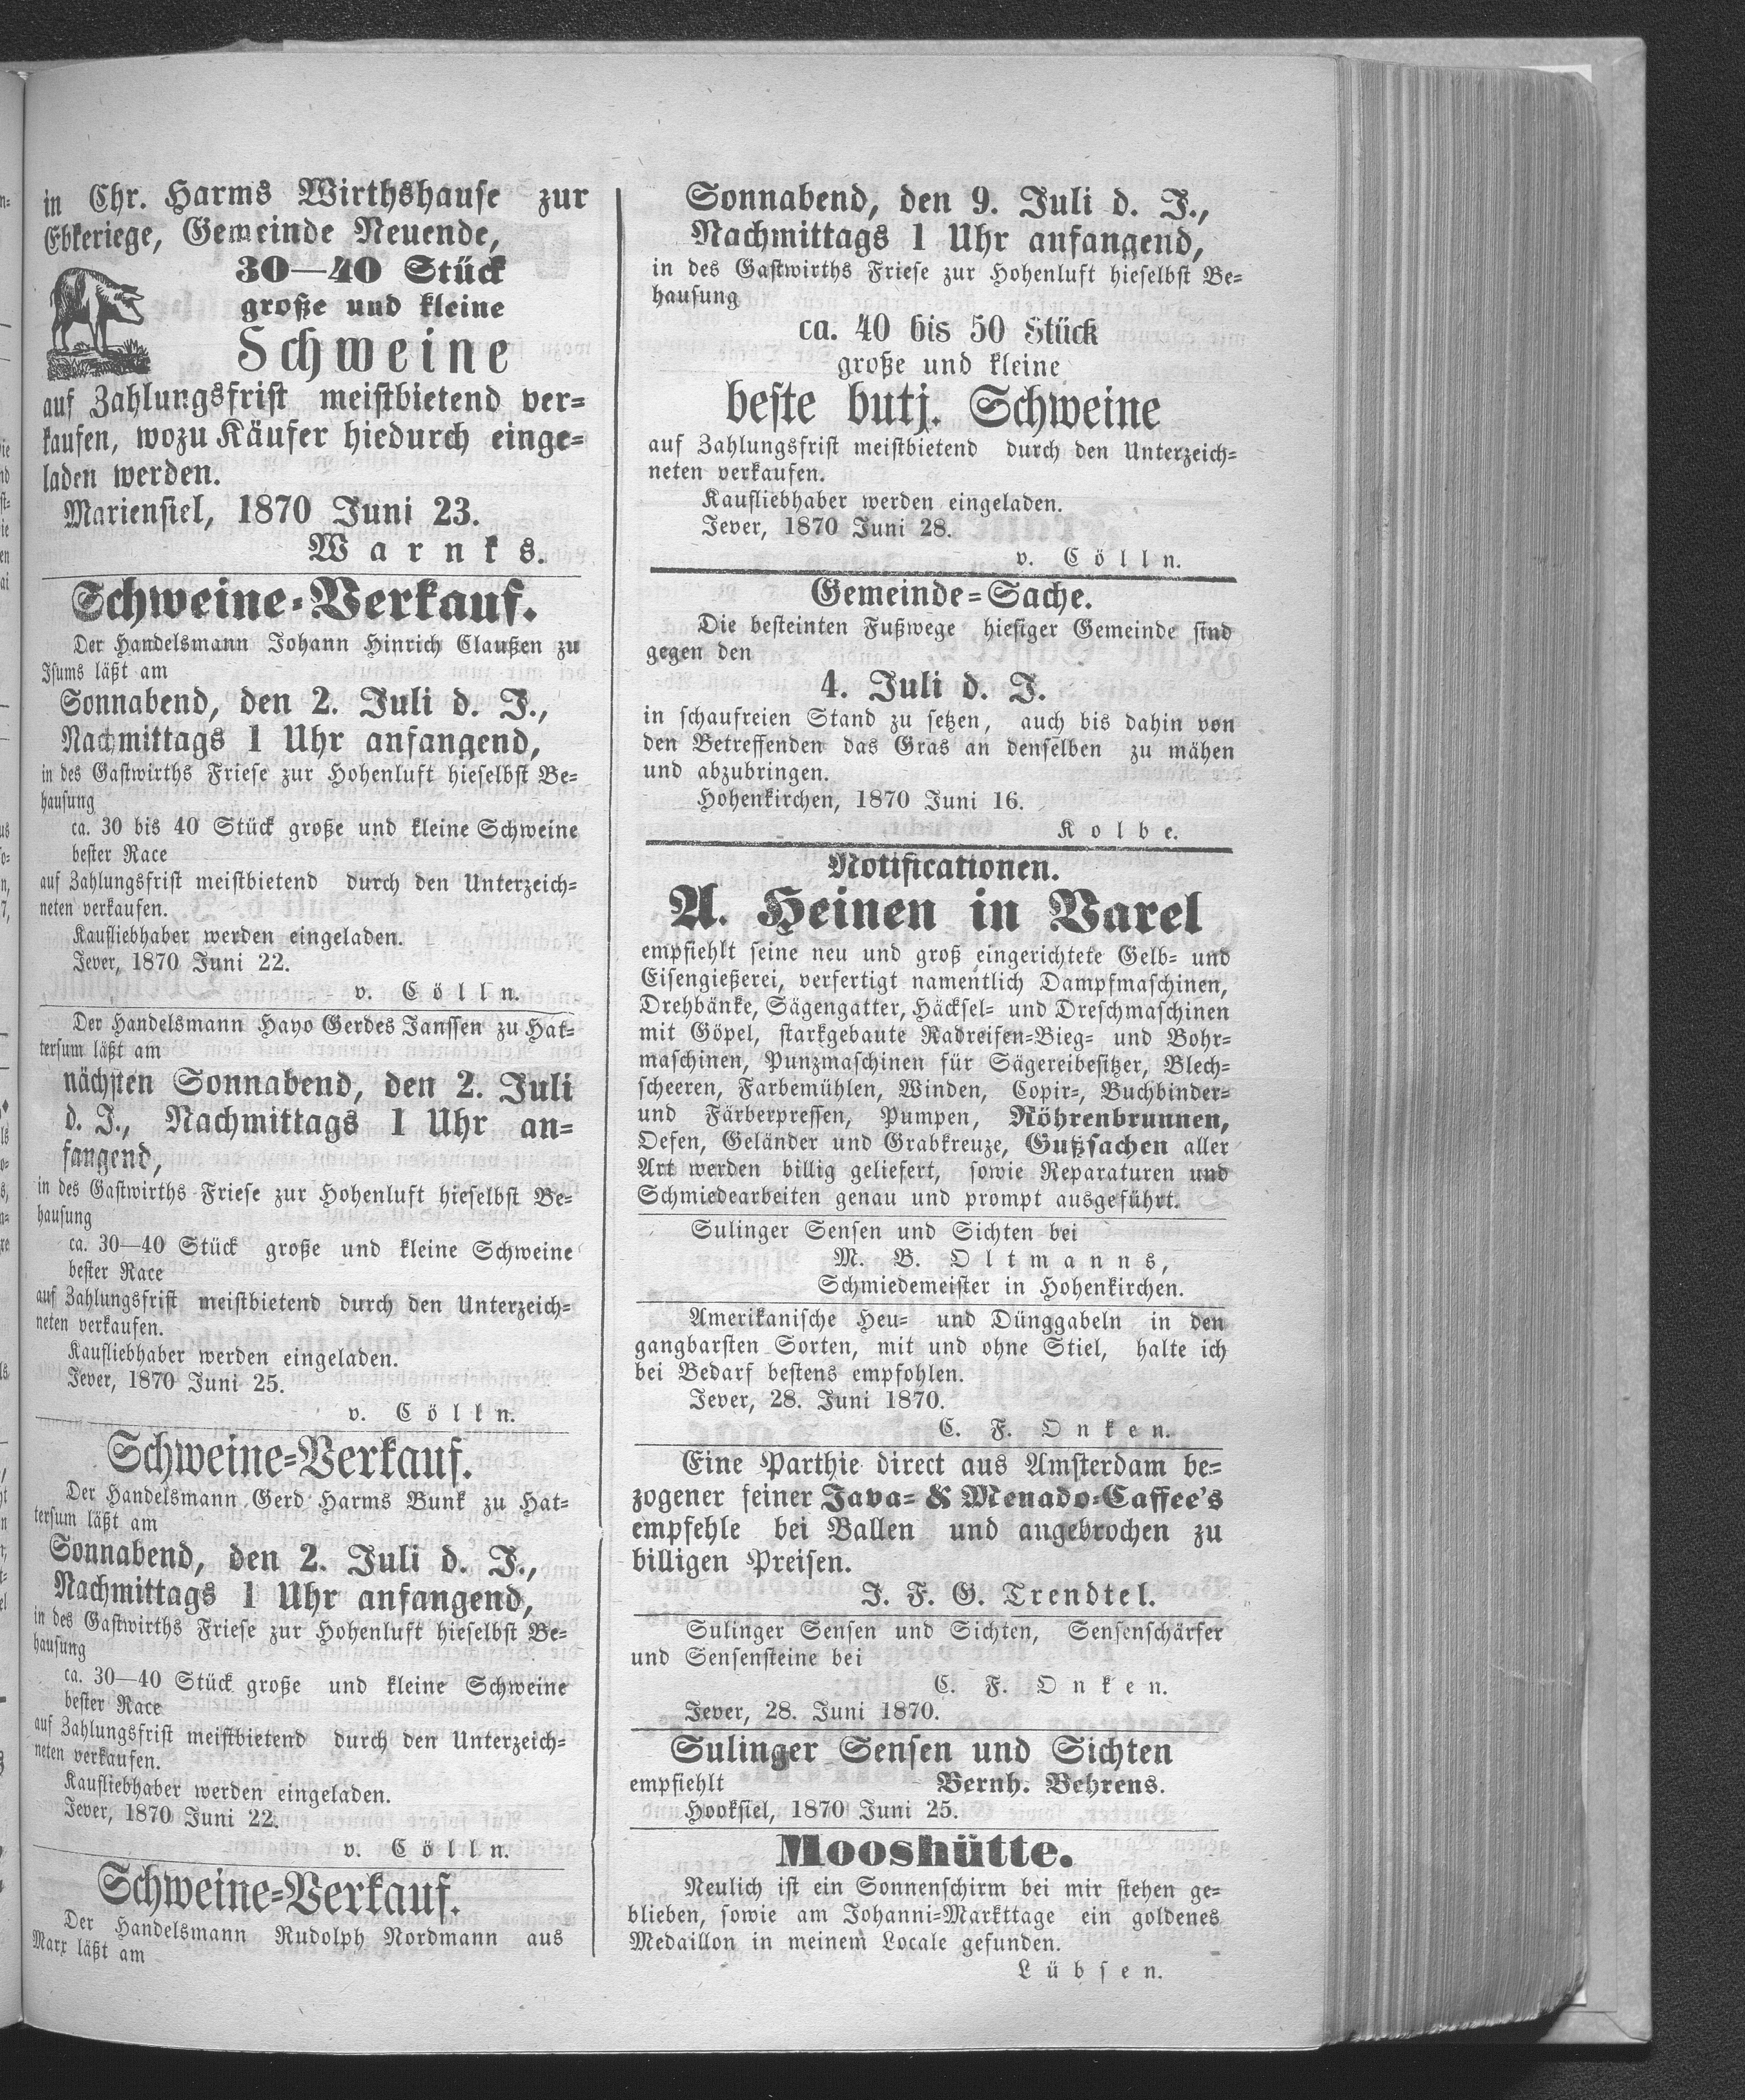 in Chr. Harms Wirthshause zur
Ebkeriege, Gemeinde Neuende,
30—40 Stück
große und kleine
Schweine
auf Zahlungsfrist meistbietend ver=
kaufen, wozu Käufer hiedurch einge=
laden werden.
Mariensiel, 1870 Juni 23.
Warnks.
Schweine=Verkauf.
Der Handelsmann Johann Hinrich Claußen zu
Isums läßt am
Sonnabend, den 2. Juli d. J.,
Nachmittags 1 Uhr anfangend,
in des Gastwirths Friese zur Hohenluft hieselbst Be=
hausung
ca. 30 bis 40 Stück große und kleine Schweine
bester Race
auf Zahlungsfrist meistbietend durch den Unterzeich=
neten verkaufen.
Kaufliebhaber werden eingeladen.
Jever, 1870 Juni 22.
v. Cölln.
Der Handelsmann Hayo Gerdes Janssen zu Hat=
tersum läßt am
nächsten Sonnabend, den 2. Juli
d. J., Nachmittags 1 Uhr an=
fangend,
in des Gastwirths Friese zur Hohenluft hieselbst Be=
hausung
ca. 30—40 Stück große und kleine Schweine
bester Race
auf Zahlungsfrist meistbietend durch den Unterzeich=
neten verkaufen.
Kaufliebhaber werden eingeladen.
Jever, 1870 Juni 25.
v. Cölln.
Schweine=Verkauf.
Der Handelsmann Gerd Harms Bunk zu Hat=
tersum läßt am
Sonnabend, den 2. Juli d. J.,
Nachmittags 1 Uhr anfangend,
in des Gastwirths Friese zur Hohenluft hieselbst Be=
hausung
ca. 30—40 Stück große und kleine Schweine
bester Race
auf Zahlungsfrist meistbietend durch den Unterzeich=
neten verkaufen.
Kaufliebhaber werden eingeladen.
Jever, 1870 Juni 22.
v. Cölln.
Schweine=Verkauf.
Der Handelsmann Rudolph Nordmann aus
Marx läßt am
Sonnabend, den 9. Juli d. J.,
Nachmittags 1 Uhr anfangend,
in des Gastwirths Friese zur Hohenluft hieselbst Be=
hausung
ca. 40 bis 50 Stück
große und kleine
beste butj. Schweine
auf Zahlungsfrist meistbietend durch den Unterzeich=
neten verkaufen.
Kaufliebhaber werden eingeladen.
Jever, 1870 Juni 28.
v. Cölln.
Gemeinde=Sache.
Die besteinten Fußwege hiesiger Gemeinde sind
gegen den
4. Juli d. J.
in schaufreien Stand zu setzen, auch bis dahin von
den Betreffenden das Gras an denselben zu mähen
und abzubringen.
Hohenkirchen, 1870 Juni 16.
Kolbe.
Notificationen.
A. Heinen in Varel
empfiehlt seine neu und groß eingerichtete Gelb= und
Eisengießerei, verfertigt namentlich Dampfmaschinen,
Drehbänke, Sägengatter, Häcksel= und Dreschmaschinen
mit Göpel, starkgebaute Radreifen=Bieg= und Bohr=
maschinen, Punzmaschinen für Sägereibesitzer, Blech=
scheeren, Farbemühlen, Winden, Copir=, Buchbinder=
und Färberpressen, Pumpen, Röhrenbrunnen,
Oefen, Geländer und Grabkreuze, Gußsachen aller
Art werden billig geliefert, sowie Reparaturen und
Schmiedearbeiten genau und prompt ausgeführt.
Sulinger Sensen und Sichten bei
M. B. Oltmanns,
Schmiedemeister in Hohenkirchen.
Amerikanische Heu= und Dünggabeln in den
gangbarsten Sorten, mit und ohne Stiel, halte ich
bei Bedarf bestens empfohlen.
Jever, 28. Juni 1870.
C. F. Onken.
Eine Parthie direct aus Amsterdam be=
zogener feiner Java= & Menado=Caffee's
empfehle bei Ballen und angebrochen zu
billigen Preisen.
J. F. G. Trendtel.
Sulinger Sensen und Sichten, Sensenschärfer
und Sensensteine bei
C. F. Onken.
Jever, 28. Juni 1870.
Sulinger Sensen und Sichten
empfiehlt Bernh. Behrens.
Hooksiel, 1870 Juni 25.
Mooshütte.
Neulich ist ein Sonnenschirm bei mir stehen ge=
blieben, sowie am Johanni=Markttage ein goldenes
Medaillon in meinem Locale gefunden.
Lübsen.